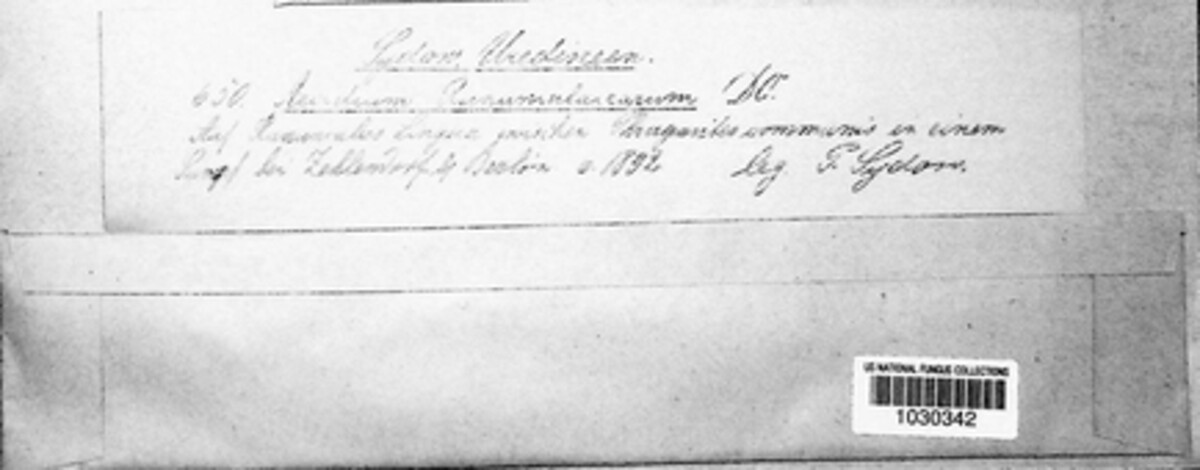 Sydow Uredineen.
650. Aecidium Ranunculacearum DC.
Auf Ranunculus Lingua zwischen Phragmites communis in einem
bei Zehlendorf b Berlin 1892 leg. P. Sydow.
US NATIONAL FUNGUS COLLECTIONS
1030342